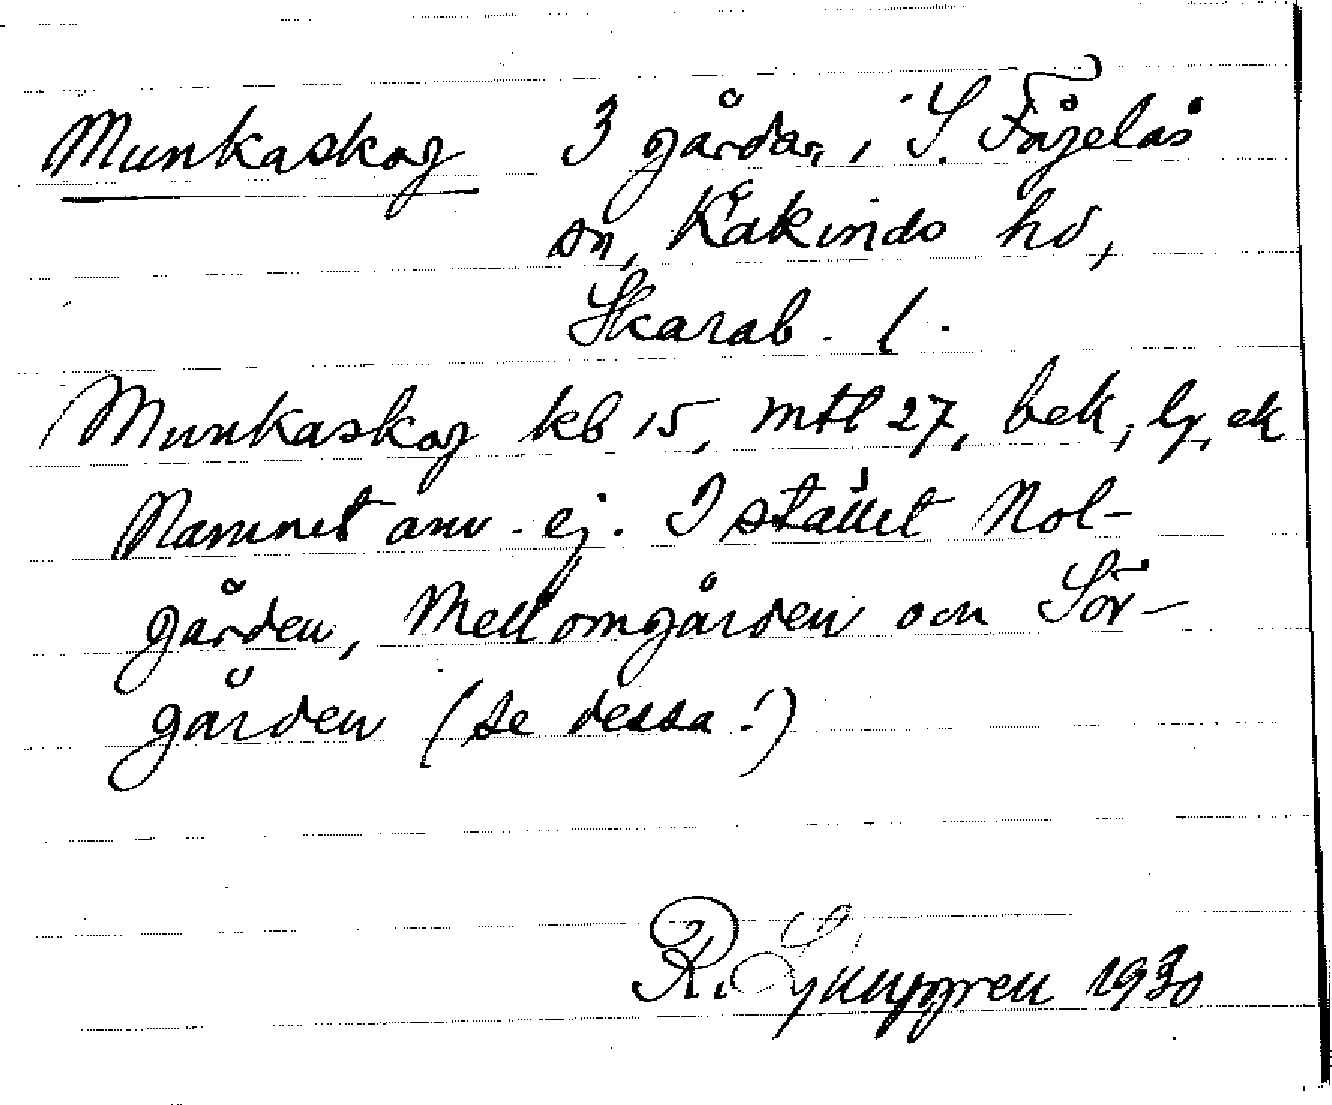 Munkaskog 3 gårdar, i S. Fågelås
sn, Kåkinds hd,
Skarab. l.
Munkaskog kb 15, mtl 27, bek, lr, ek
Namnet anv. ej. I stället Nol-
gården, Mellomgården och Sör-
gården (se dessa!)
R. Ljunggren 1930